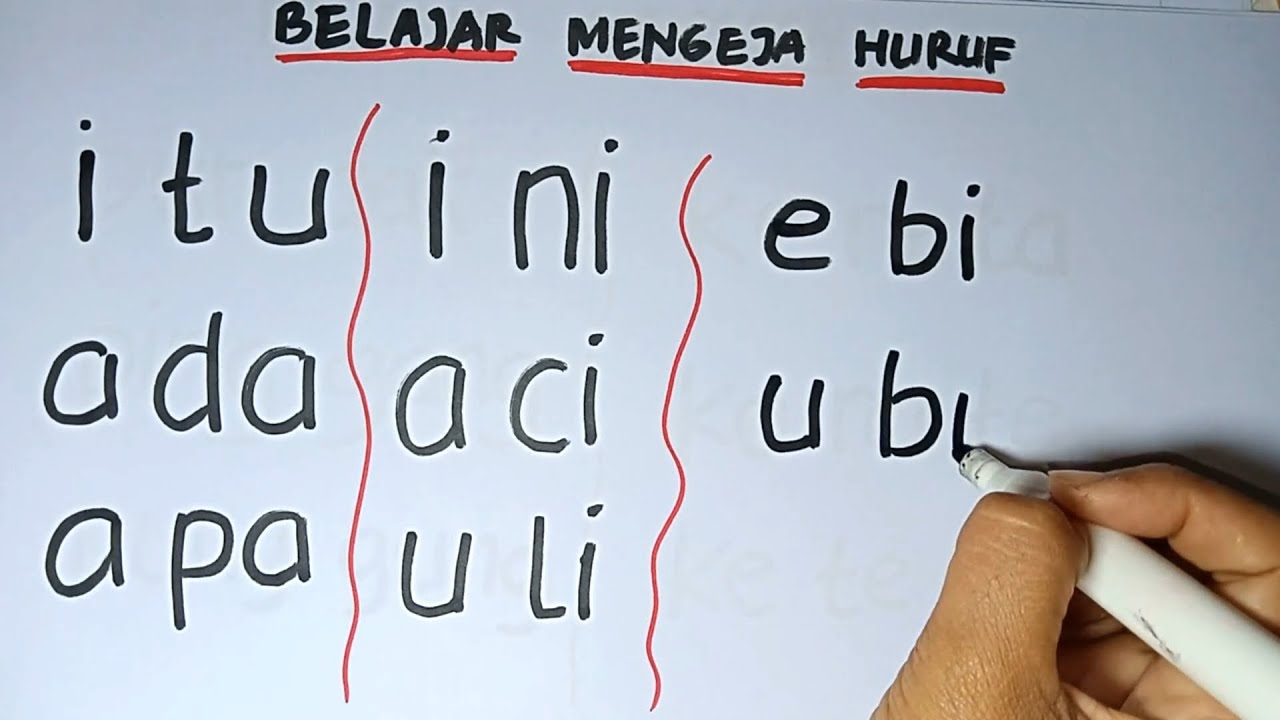 BELAJAR MENGEJA HURUF
i tu i ni e bi
a da a ci u bı
a pa u li